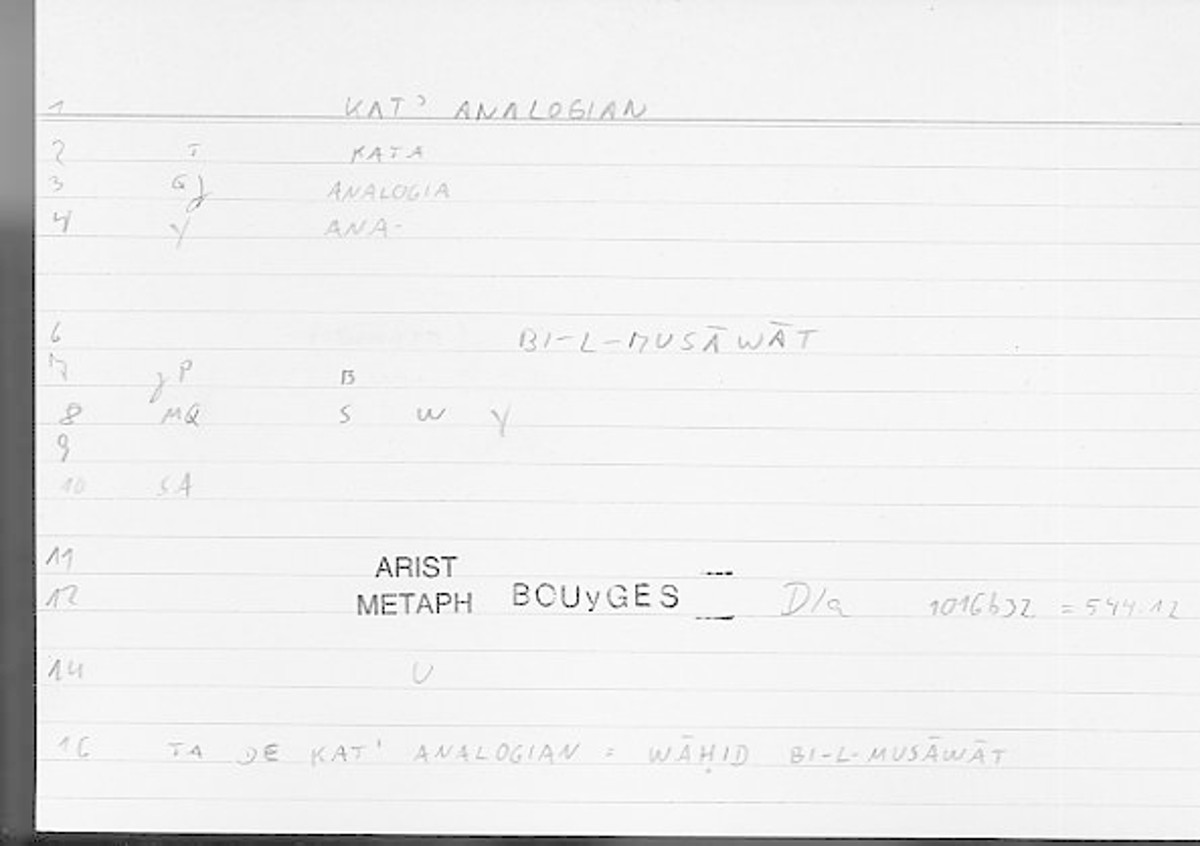 1 KAT' ANALOGIAN
2 T KATA
3 Gj ANALOGIA
4 y ANA-
6 BI-L-MUSĀWĀT
7 jP B
8 MQ S W Y
9
10 SA
11 ARIST
12 METAPH BOUyGES D/a 1016b32 = 544.12
14 U
16 TA DE KAT' ANALOGIAN = WĀḤID BI-L-MUSĀWĀT